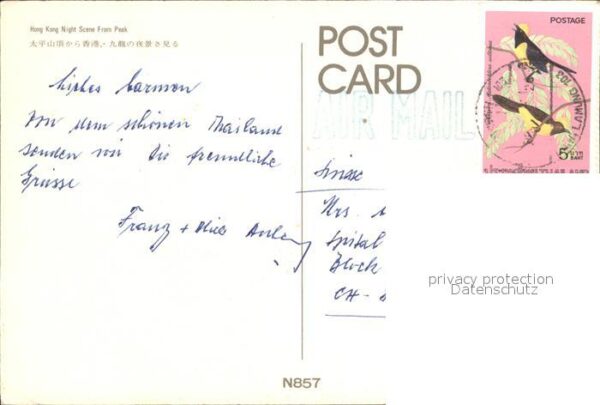 Hong Kong Night Scene From Peak
太平山頂から香港、九龍の夜景を見る
POST
CARD
POSTAGE
AIR MAIL
LAMPANG
5
Liebes Carmen
Von dem schönen Thailand
senden wir Die freundliche
Grüsse
Franz +
Mrs.
Spital
Block
CH-
privacy protection
Datenschutz
N857